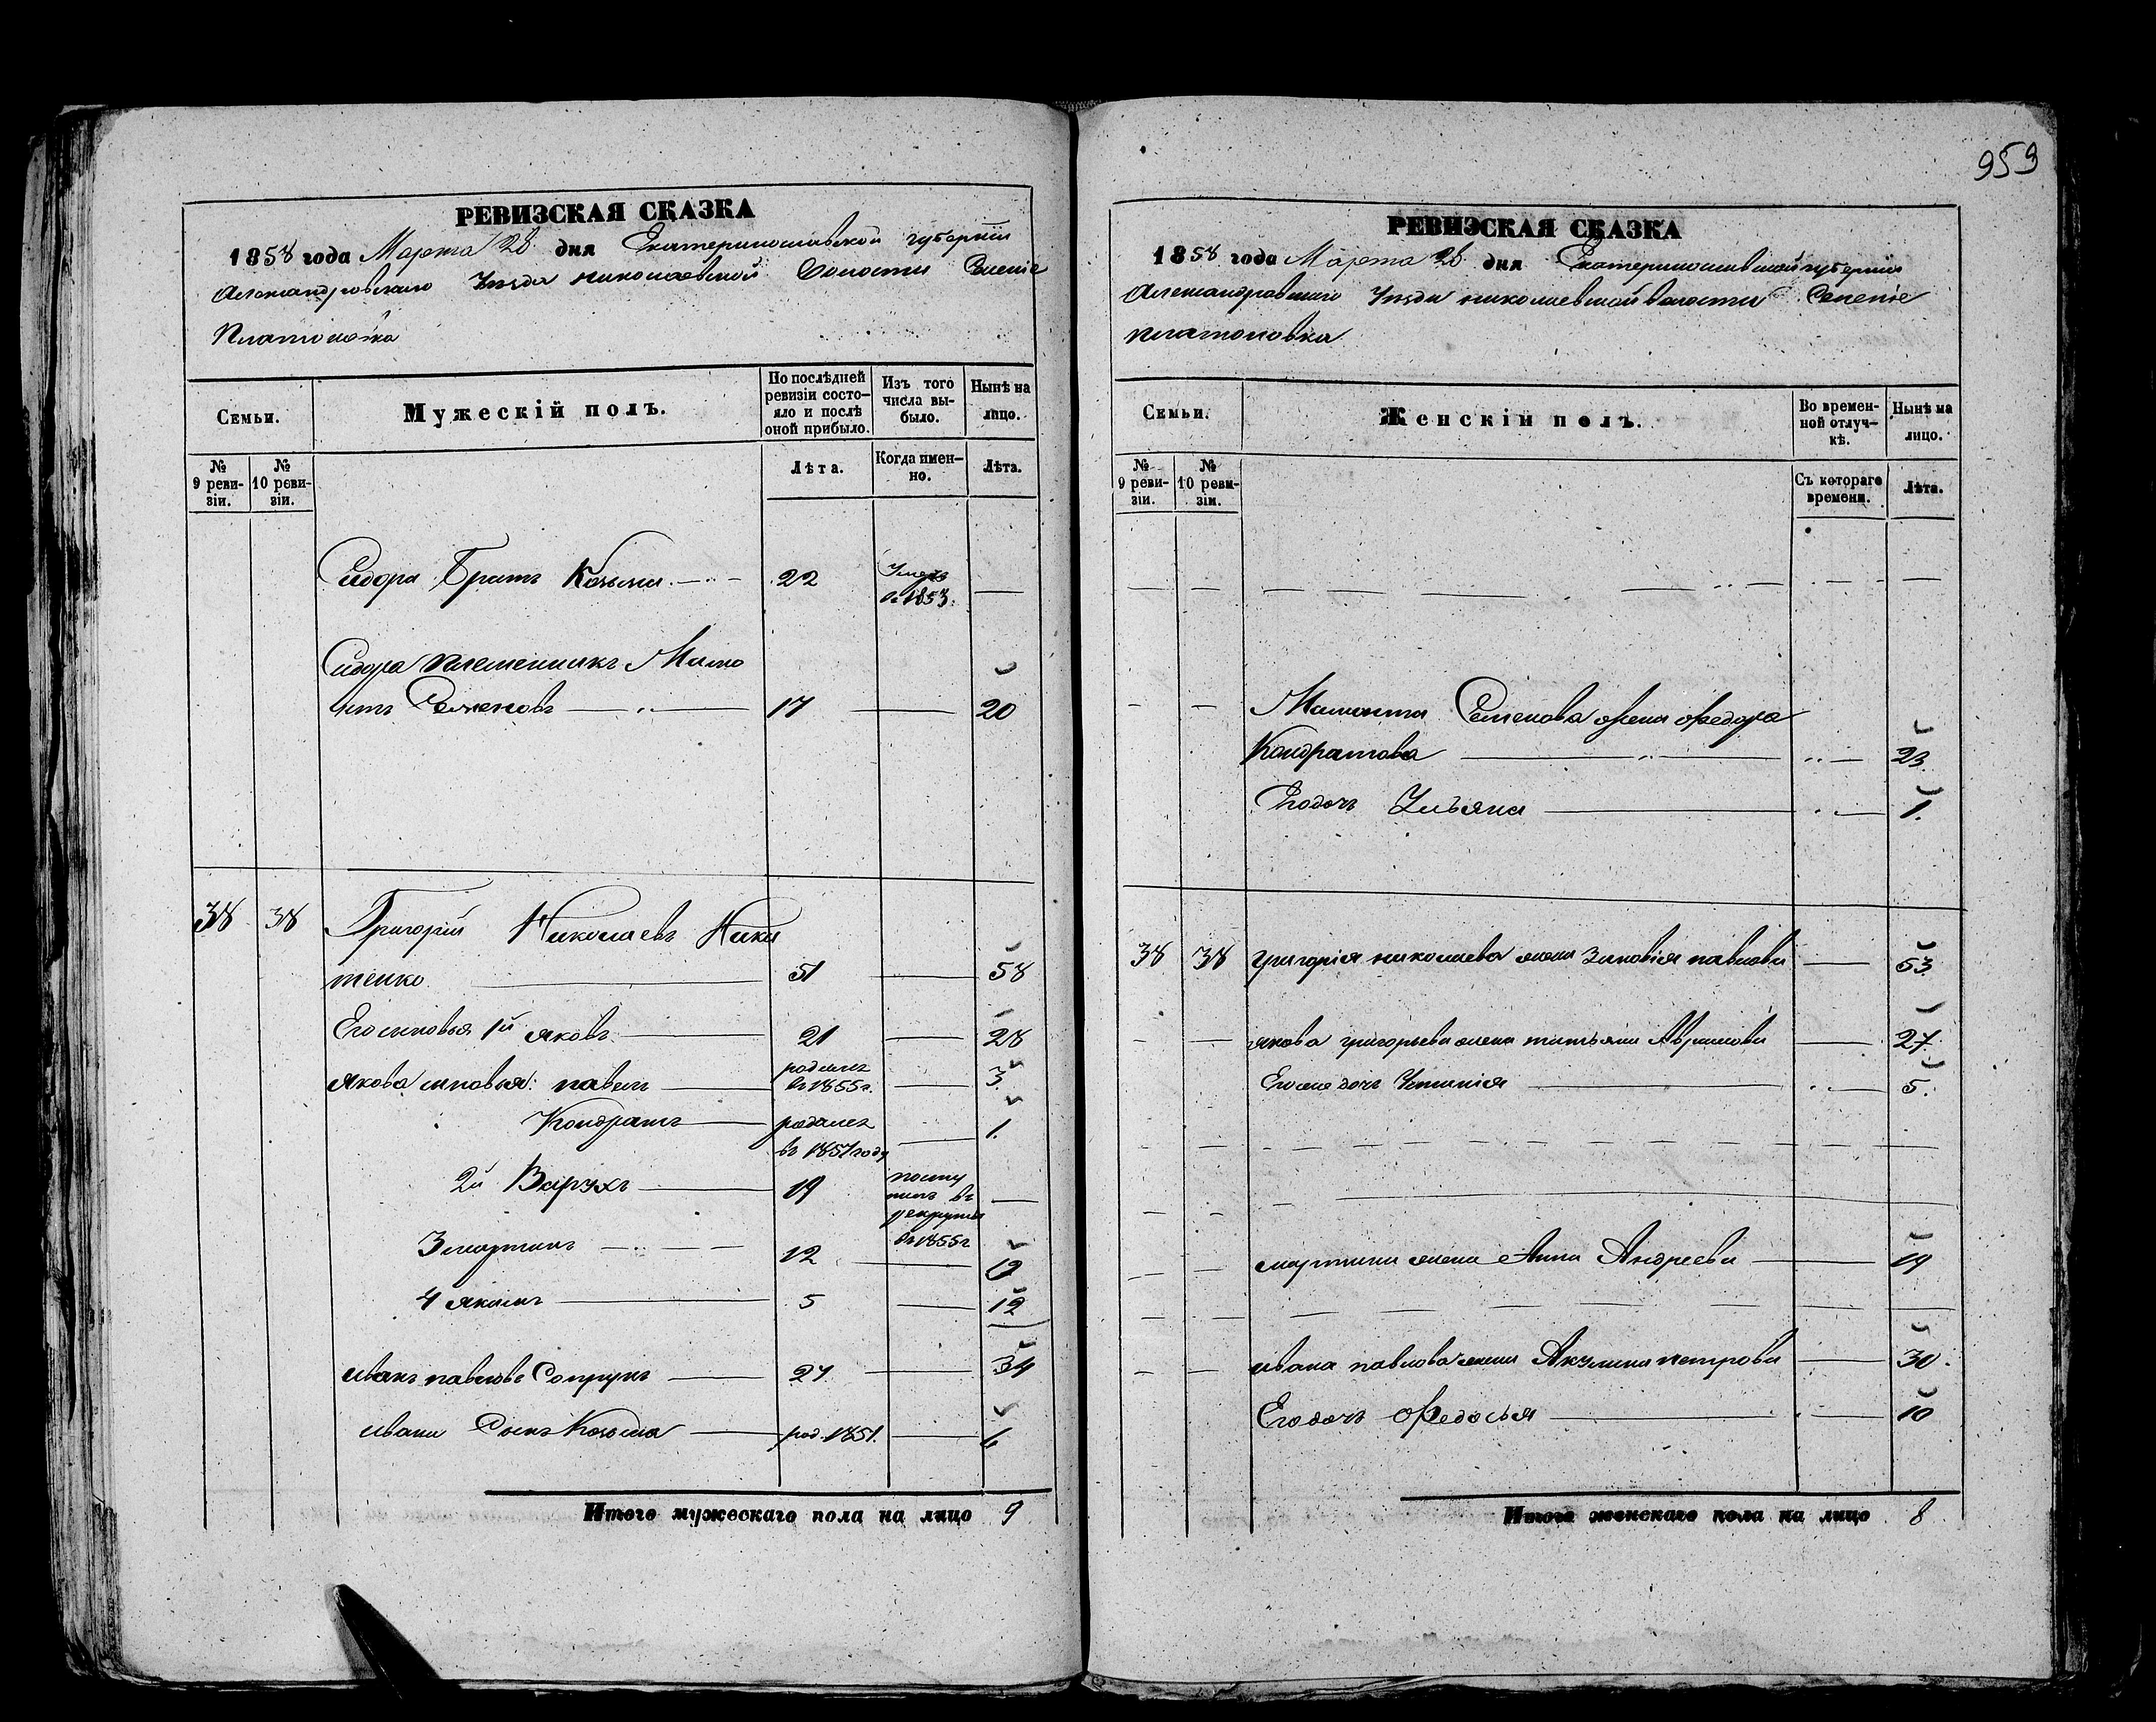 РЕВИЗСКАЯ СКАЗКА
1858 года Марта 28 дня Екатеринославской губернии
Александровскаго Уезда николаевской Волости Селение
Платоновка
Семьи.
Мужескій полъ.
По послѣдней ревизіи состояло и послѣ оной прибыло.
Изъ того числа выбыло.
Нынѣ на лицо.
№ 9 ревизіи.
№ 10 ревизіи.
Лѣта.
Когда именно.
Лѣта.
Сидора Братъ Козьма 22 Умеръ въ 1853. —
Сидора племенникъ Мамо
нтъ Семеновъ 17 — 20
38 38 Григорій Николаевъ Ники
тенко 51 — 58
Его сыновья 1й яковъ 21 — 28
якова сыновья: павелъ родился въ 1855 г. — 3.
Кондратъ родился въ 1857 году — 1.
2й 19 поступилъ въ рекруты въ 1855 г —
3 мартинъ 12 — 19
4 якимъ 5 — 12
иванъ павловъ Сопрунъ 27 — 34
ивана Сынъ Козьма род. 1851. — 6
Итого мужескаго пола на лицо 9
959
РЕВИЗСКАЯ СКАЗКА
1858 года Марта 28 дня Екатеринославской губернии
Александровскаго Уезда николаевской волости Селение
платоновка
Семьи.
Женскій полъ.
Во временной отлучкѣ.
Нынѣ на лицо.
№ 9 ревизіи.
№ 10 ревизіи.
Съ котораго времени.
Лѣта.
Мамонта Семенова жена Федора
Кондратова — 23
Его дочь Ульяна — 1.
38 38 григорія николаева жена Зиновія павлова — 53
якова григорьева жена татьяна Абрамова — 27
Его же дочь — 5.
мартина жена Анна Андреева — 19
ивана павлова жена Акулина петрова — 30.
Его дочь Федосья — 10
Итого женскаго пола на лицо 8